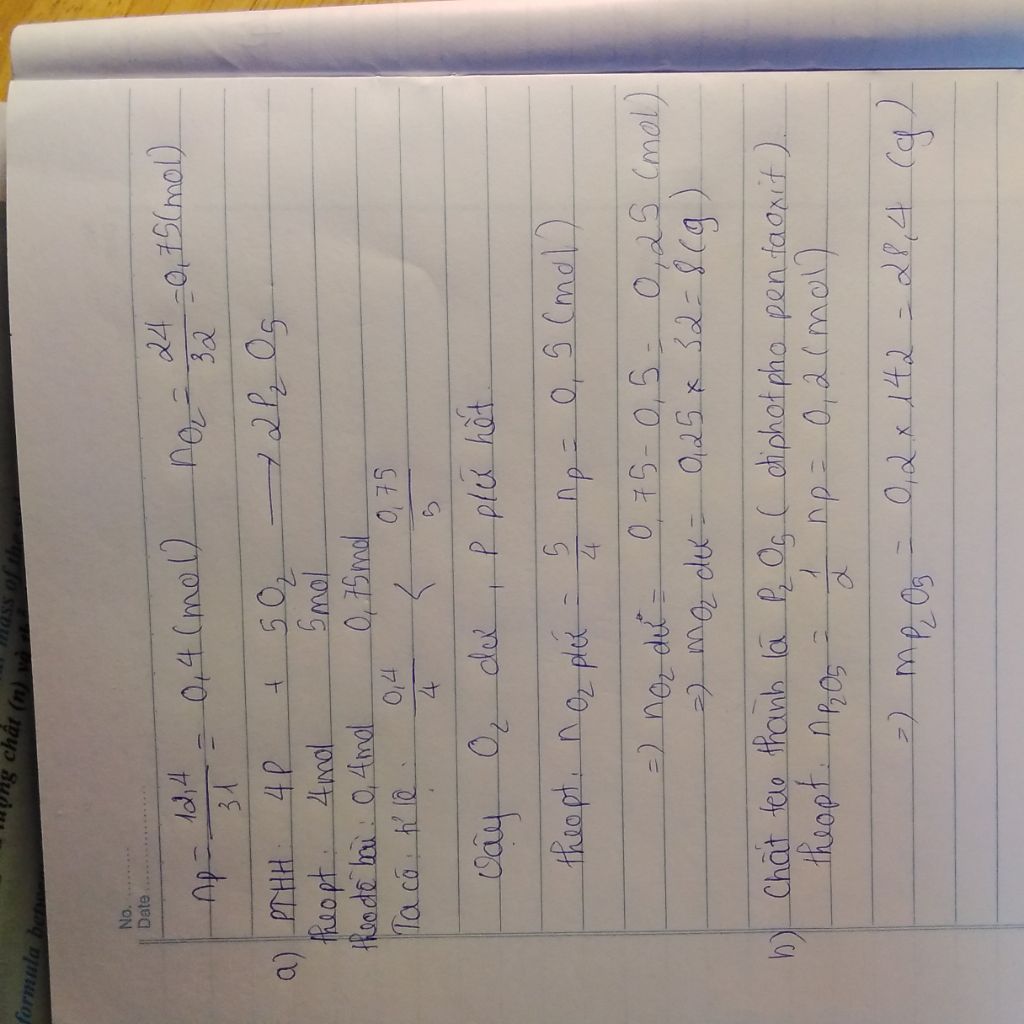 No. ..........
Date ..........
nP = 12,4/31 = 0,4 (mol) nO2 = 24/32 = 0,75 (mol)
a) PTHH: 4P + 5O2 ⟶ 2P2O5
theopt: 4mol 5mol
theo đề bài: 0,4mol 0,75mol
Ta có: tỉ lệ: 0,4/4 < 0,75/5
Vậy O2 dư, P pứ hết.
theopt: nO2 pứ = 5/4 nP = 0,5 (mol)
=) nO2 dư = 0,75 - 0,5 = 0,25 (mol)
=) mO2 dư = 0,25 x 32 = 8 (g)
b) Chất tạo thành là P2O5 (điphotpho pentaoxit).
theopt: nP2O5 = 1/2 nP = 0,2 (mol)
=) mP2O5 = 0,2 x 142 = 28,4 (g)